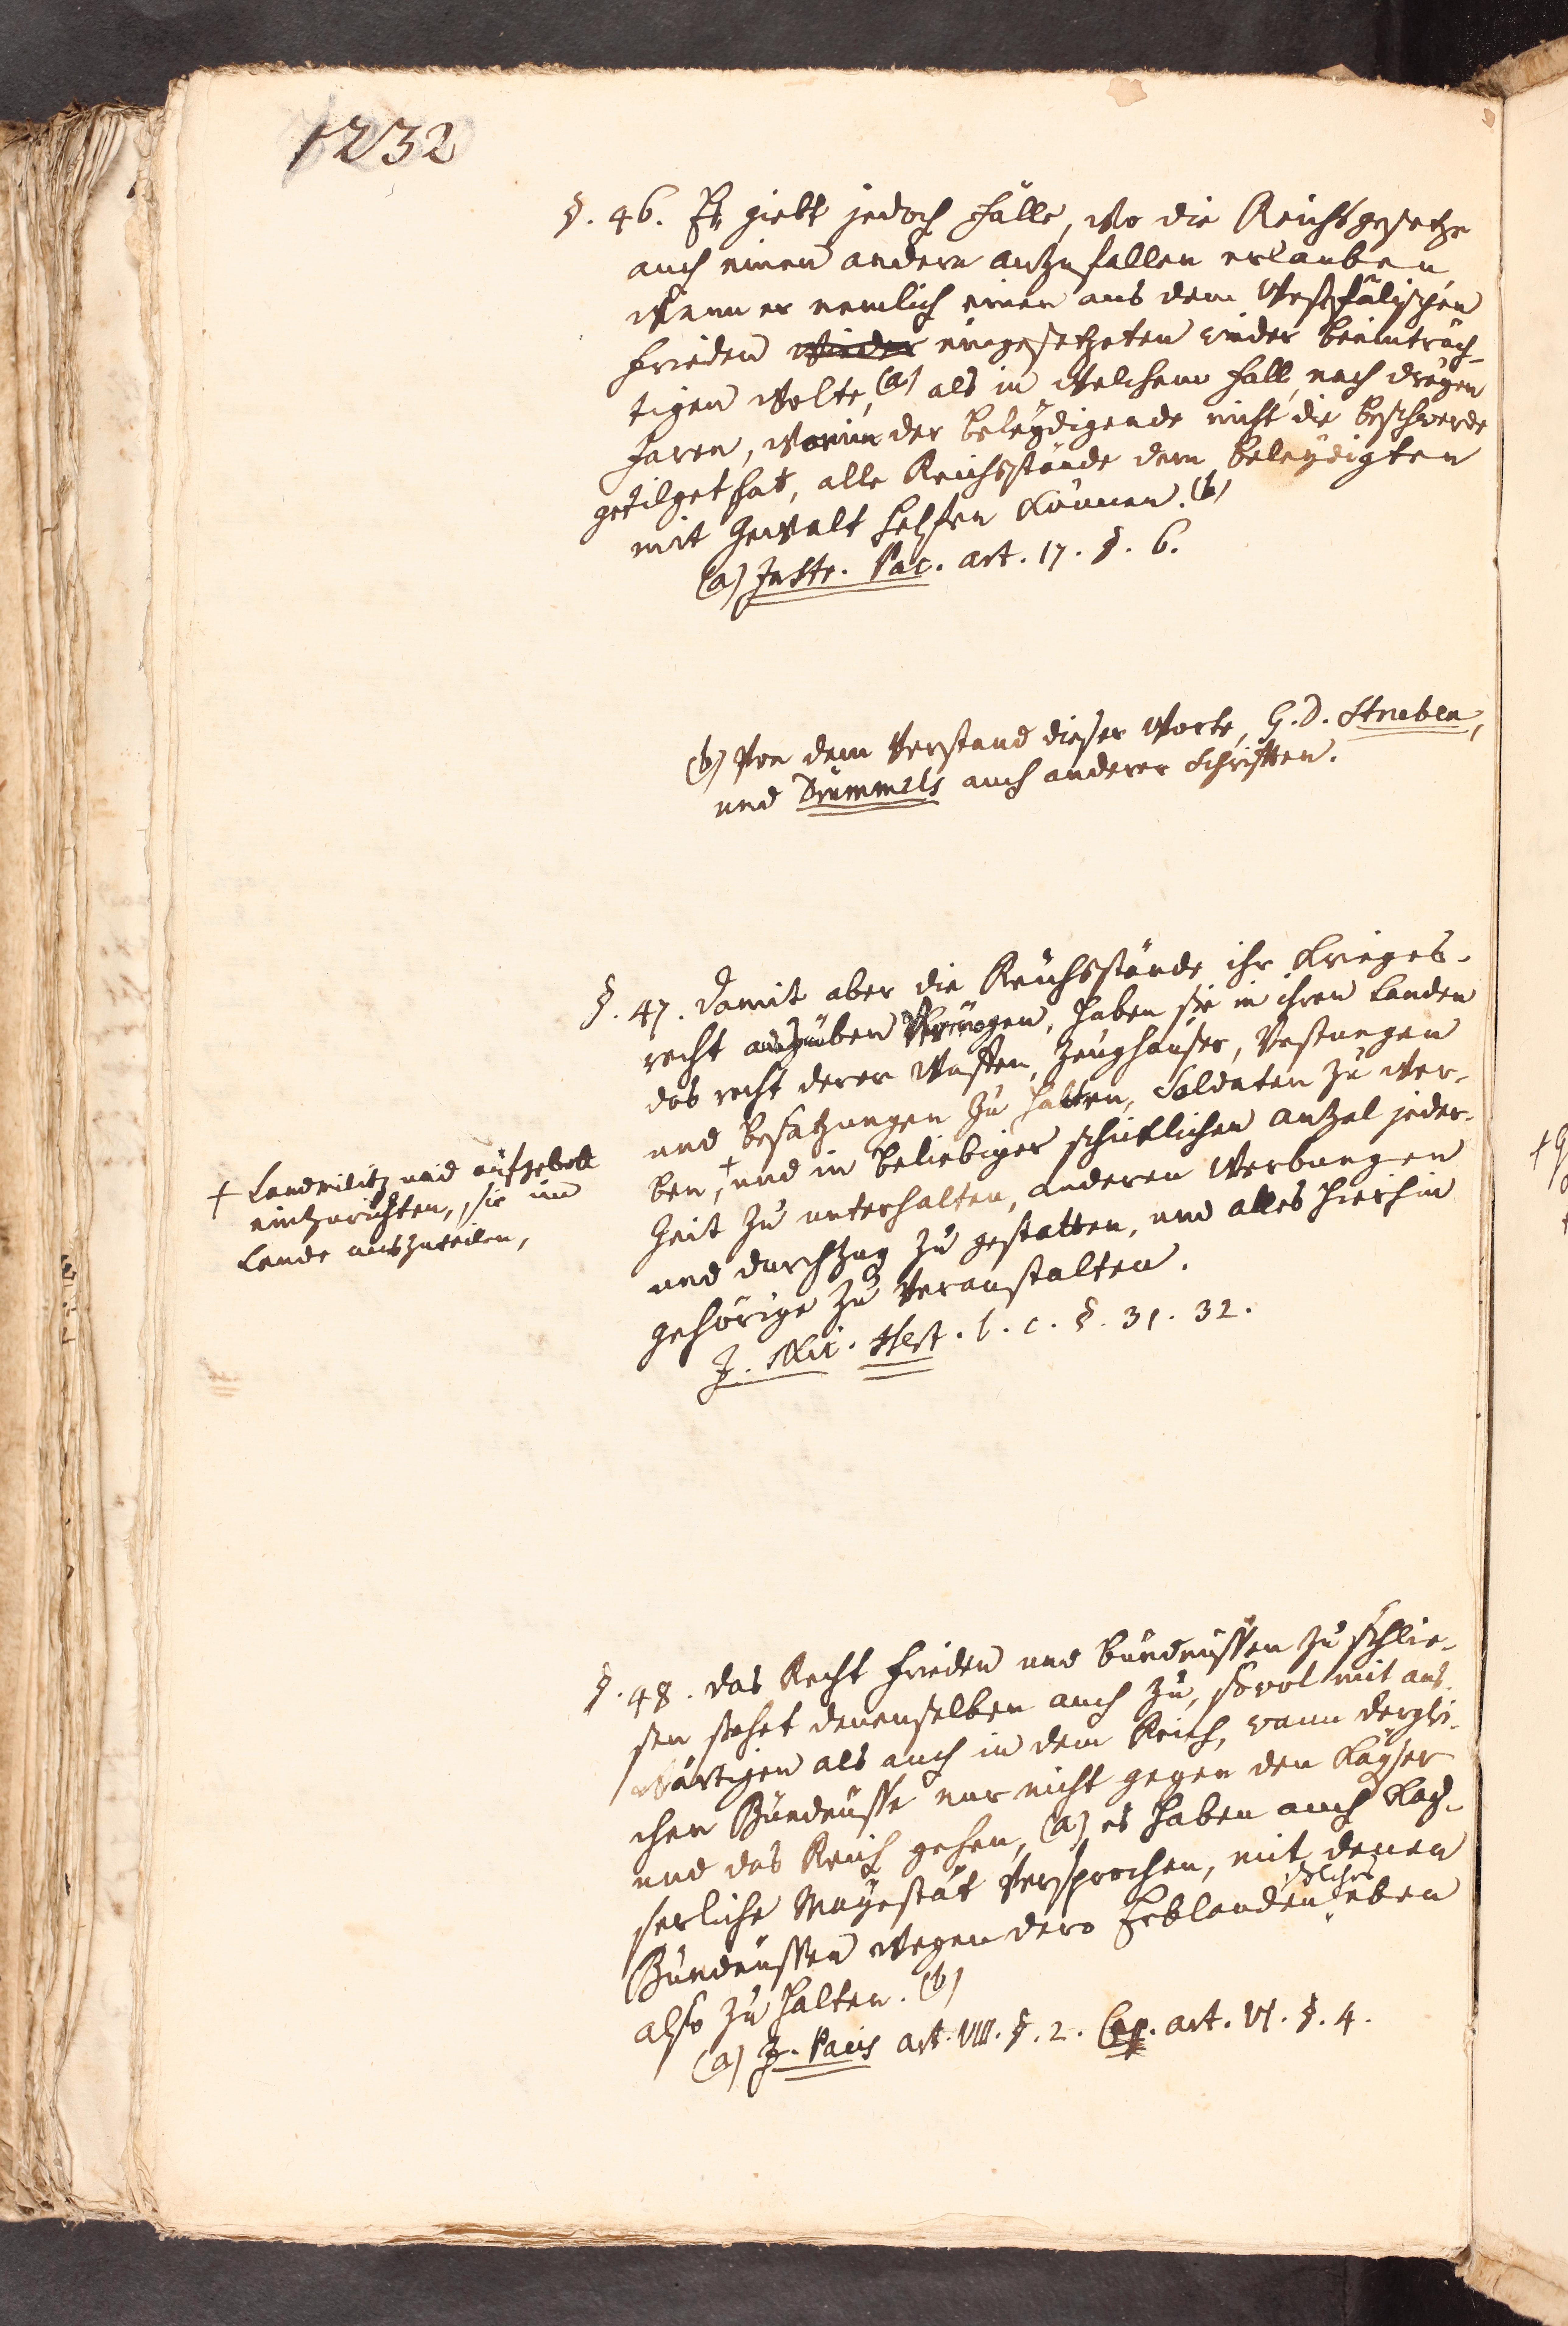 1232
§. 46. Es giebt jedoch fälle, wo die Reichsgesetze
auch einen andern anzufallen erlauben,
Wann er nemlich einen aus dem Westfälischen
frieden wieder eingesetzeten wieder beeinträch-
tigen wolte, (a) als in welchem fall, nach dreyen
Jaren, worin der beleydigende nicht die beschwerde
getilget hat, alle Reichsstände dem beleydigten
mit Gewalt helfen können. (b)
(a) Instr. Pac. art. 17. §. 6.
(b) Von dem Verstand dieser Worte, G. D. Struben,
und Dümmels auch anderer Schriften.
§. 47. Damit aber die Reichsstände ihr Krieges-
recht auszuüben Vermögen, haben sie in ihren Landen
das recht derer Waffen, Zeughäuser, Vestungen
und besatzungen zu halten, Soldaten zu wer-
ben, + und in beliebiger schicklichen anzal jeder-
Zeit zu unterhalten, anderen Werbungen
und durchzug zu gestatten, und alles hierhin
gehörige zu Veranstalten.
J. Mit. Hest. l. c. §. 31. 32.
+ Landmilitz und aufgebott
einzurichten, sie im
Lande auszuteilen,
§. 48. Das Recht frieden und bündnüssen zu schlie-
sen stehet denenselben auch zu, sowol mit aus-
wärtigen als auch in dem Reich, wann derglei-
chen Bündnüsse nur nicht gegen den Kayser
und das Reich gehen, (a) es haben auch Kay-
serliche Mayestät Versprochen, mit denen
Bündnüssen wegen dero Erblanden solches eben
also zu halten. (b)
(a) J. Pacis art. VIII. §. 2. Cap. art. VI. §. 4.